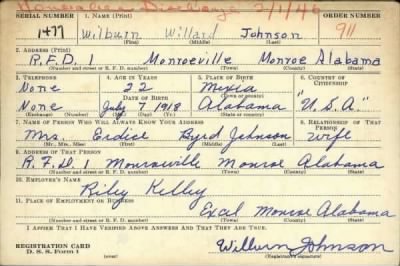 Honorable Discharge 2/1/46
SERIAL NUMBER 1. NAME (Print) ORDER NUMBER
1477 Wilburn Willard Johnson 911
(First) (Middle) (Last)
2. ADDRESS (Print)
R.F.D. 1 Monroeville Monroe Alabama
(Number and street or R. F. D. number) (Town) (County) (State)
3. TELEPHONE 4. AGE IN YEARS 5. PLACE OF BIRTH 6. COUNTRY OF CITIZENSHIP
None 22 Mexia
DATE OF BIRTH (Town or county)
None July 7 1918 Alabama "U.S.A."
(Exchange) (Number) (Mo.) (Day) (Yr.) (State or country)
7. NAME OF PERSON WHO WILL ALWAYS KNOW YOUR ADDRESS 8. RELATIONSHIP OF THAT PERSON
Mrs. Byrd Johnson wife
(Mr., Mrs., Miss) (First) (Middle) (Last)
9. ADDRESS OF THAT PERSON
R.F.D. 1 Monroeville Monroe Alabama
(Number and street or R. F. D. number) (Town) (County) (State)
10. EMPLOYER'S NAME
Riley Kelley
11. PLACE OF EMPLOYMENT OR BUSINESS
Excel Monroe Alabama
(Number and street or R. F. D. number) (Town) (County) (State)
I AFFIRM THAT I HAVE VERIFIED ABOVE ANSWERS AND THAT THEY ARE TRUE.
REGISTRATION CARD
D. S. S. Form 1
Wilburn Johnson
(Registrant's signature)